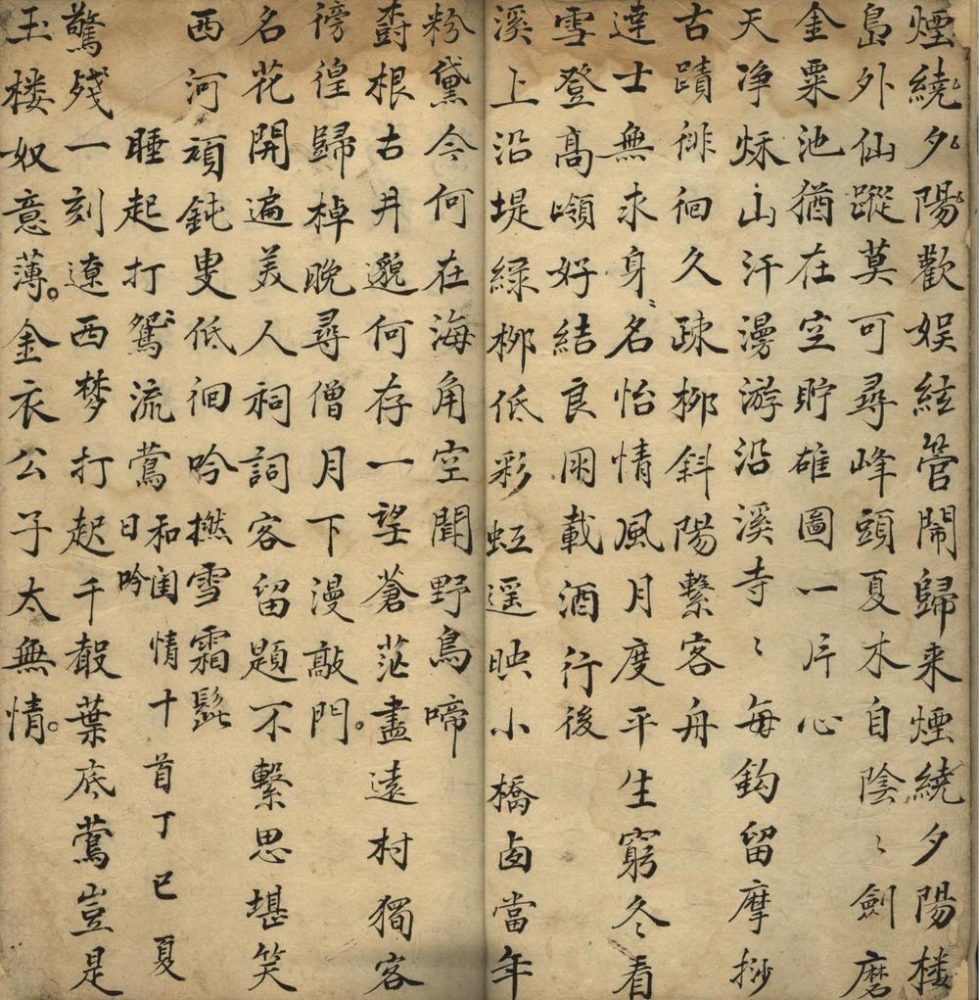 煙繞夕陽歡娱絃管鬧歸来煙繞夕陽楼
島外仙蹤莫可尋峰頭夏木自陰〻劍磨
金粟池猶在空貯雄圖一片心
天净秌〻山汗漫游沿溪寺〻每鈎留摩挱
古蹟徘徊久疎栁斜陽繫客舟
達士無求身〻名怡情風月度平生窮冬看
雪登高嶺好結良朋載酒行後
溪上沿堤綠栁低彩虹遥映小橋卥當年
粉黛今何在海角空聞野鳥啼
樹根古井邈何存一望蒼茫盡遠村獨客
徬徨歸棹晚尋僧月下漫敲門。
名花開遍美人祠詞客留題不繫思堪笑
西河頑鈍叟低徊吟撚雪霜髭
睡起打鴛流鶯 和闺情十首丁巳夏
日吟
驚殘一刻遼西梦打起千聲葉底鶯豈是
玉楼奴意薄。金衣公子太無情。